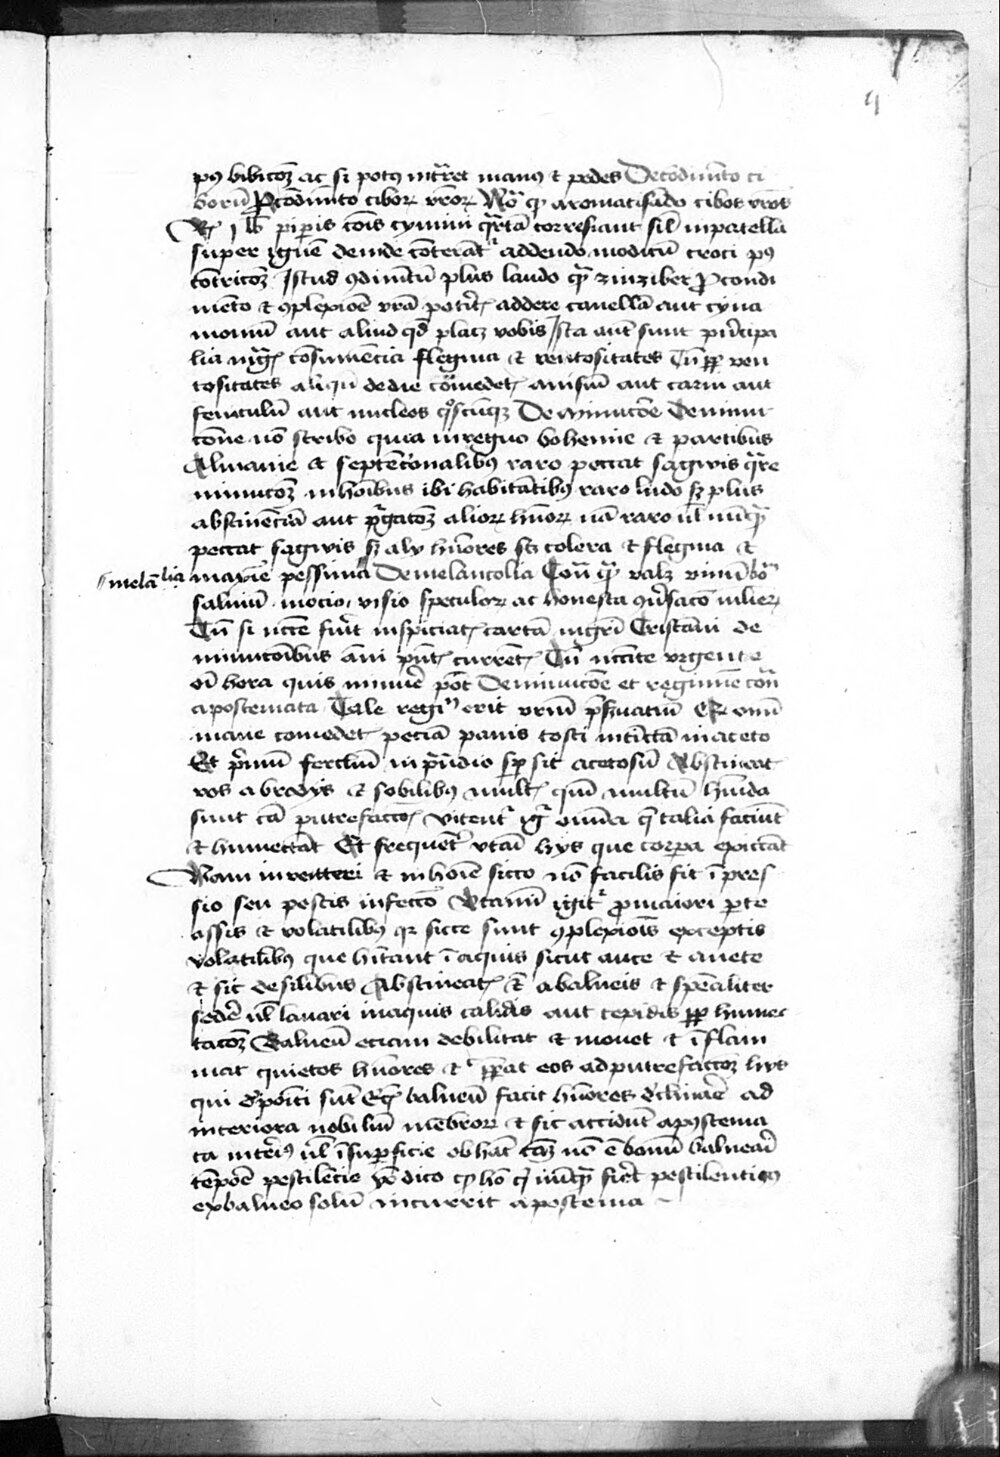 4
bibicoz ac si potus intraret manus et pedes De condimento ci
borum Pro condimento ciborum vestrorum Nota quod aromatisando cibos vestros
Rx 1 lb piperis cymini torrefiant simul in patella
super ignem deinde conterantur addendo modicum croci
Istud condimentum plus laudo quam zinziber Pro condi
mento et complexione vestra poteritis addere canellam aut cyna
momum aut aliud quod placet vobis Ista autem sunt principa
lia consumencia flegma et ventositates Tamen propter ven
tositates aliquando de die comedetis anisum aut carui aut
feniculum aut nucleos quoscumque De minucione De minu
cione non scribo quia in regno bohemie et partibus
Almanie et septentrionalibus raro peccat sangwis quare
minucionem in hominibus ibi habitantibus raro laudo sed plus
abstinenciam aut purgacionem aliorum humorum nam raro vel nunquam
peccat sangwis sed alii humores scilicet colera et flegma et
melancolia maxime pessima De melancolia Contra quam valet vinum bonum
salvium mocio visio speculorum ac honesta conversacio mulierum
Tamen si necesse fuerit inspiciatur carta magistri Cristanni de
minucionibus anni presentis currentis Tamen necessitate urgente
omni hora quis minuere potest De minucione et regimine contra
apostemata Tale regimen erit vestrum preservativum Et omni
mane comedetis peciam panis tosti intinctam in aceto
Et primum ferculum in prandio semper sit acetosum Abstineatis
vos a brodiis et sobilibus multis quoniam multum humida
sunt causa putrefaccionis vitentur igitur omnia que talia faciunt
et humectant Et frequenter utamini hiis que corpora exiccant
Nam in ventri et in homine sicco non facilis fit impres
sio seu pestis infeccio Utamini igitur pro maiori parte
assis et volatilibus quia sicce sunt complexionis exceptis
volatilibus que habitant in aquis sicut auce et anete
et sic de similibus Abstineatis eciam a balneis et specialiter
sedere vel lavari in aquis calidis aut tepidis propter humec
tacionem Balneum eciam debilitat et movet et inflam
mat quietos humores et preparat eos ad putrefaccionem hiis
qui dispositi sunt Eciam balneum facit humores declinare ad
interiora nobilium membrorum et sic accidunt apostema
ta interius vel in superficie ob hanc causam non est bonum balneari
tempore pestilencie Unde dico quod homo qui nunquam fieret pestilenticus
ex balneo solum incurrit apostema